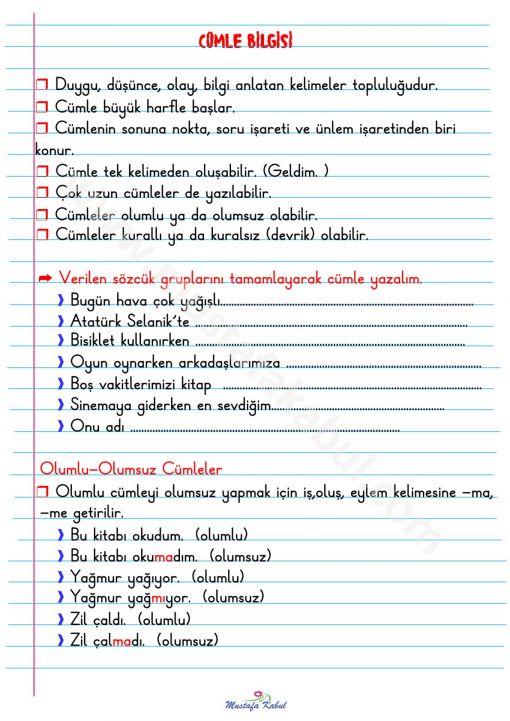 CÜMLE BİLGİSİ
❒ Duygu, düşünce, olay, bilgi anlatan kelimeler topluluğudur.
❒ Cümle büyük harfle başlar.
❒ Cümlenin sonuna nokta, soru işareti ve ünlem işaretinden biri
konur.
❒ Cümle tek kelimeden oluşabilir. (Geldim. )
❒ Çok uzun cümleler de yazılabilir.
❒ Cümleler olumlu ya da olumsuz olabilir.
❒ Cümleler kurallı ya da kuralsız (devrik) olabilir.
➦ Verilen sözcük gruplarını tamamlayarak cümle yazalım.
❫ Bugün hava çok yağışlı..............................................................................
❫ Atatürk Selanik’te ....................................................................................
❫ Bisiklet kullanırken ...................................................................................
❫ Oyun oynarken arkadaşlarımıza ............................................................
❫ Boş vakitlerimizi kitap ................................................................................
❫ Sinemaya giderken en sevdiğim.....................................................
❫ Onu adı ...................................................................................
Olumlu-Olumsuz Cümleler
❒ Olumlu cümleyi olumsuz yapmak için iş,oluş, eylem kelimesine –ma,
–me getirilir.
❫ Bu kitabı okudum. (olumlu)
❫ Bu kitabı okumadım. (olumsuz)
❫ Yağmur yağıyor. (olumlu)
❫ Yağmur yağmıyor. (olumsuz)
❫ Zil çaldı. (olumlu)
❫ Zil çalmadı. (olumsuz)
www.mustafakabul.com
Mustafa Kabul